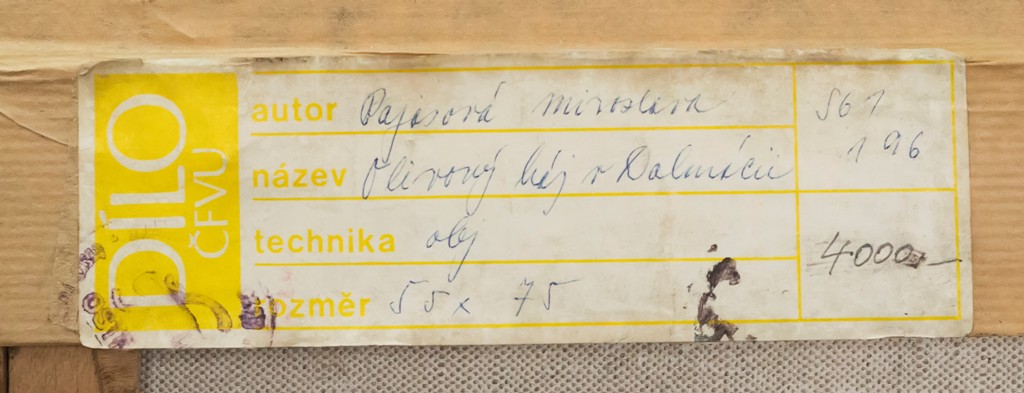 DÍLO
ČFVU
autor Pajasová Miroslava
název Olivový háj v Dalmácii
technika olej
rozměr 55 x 75
561
196
4000,-